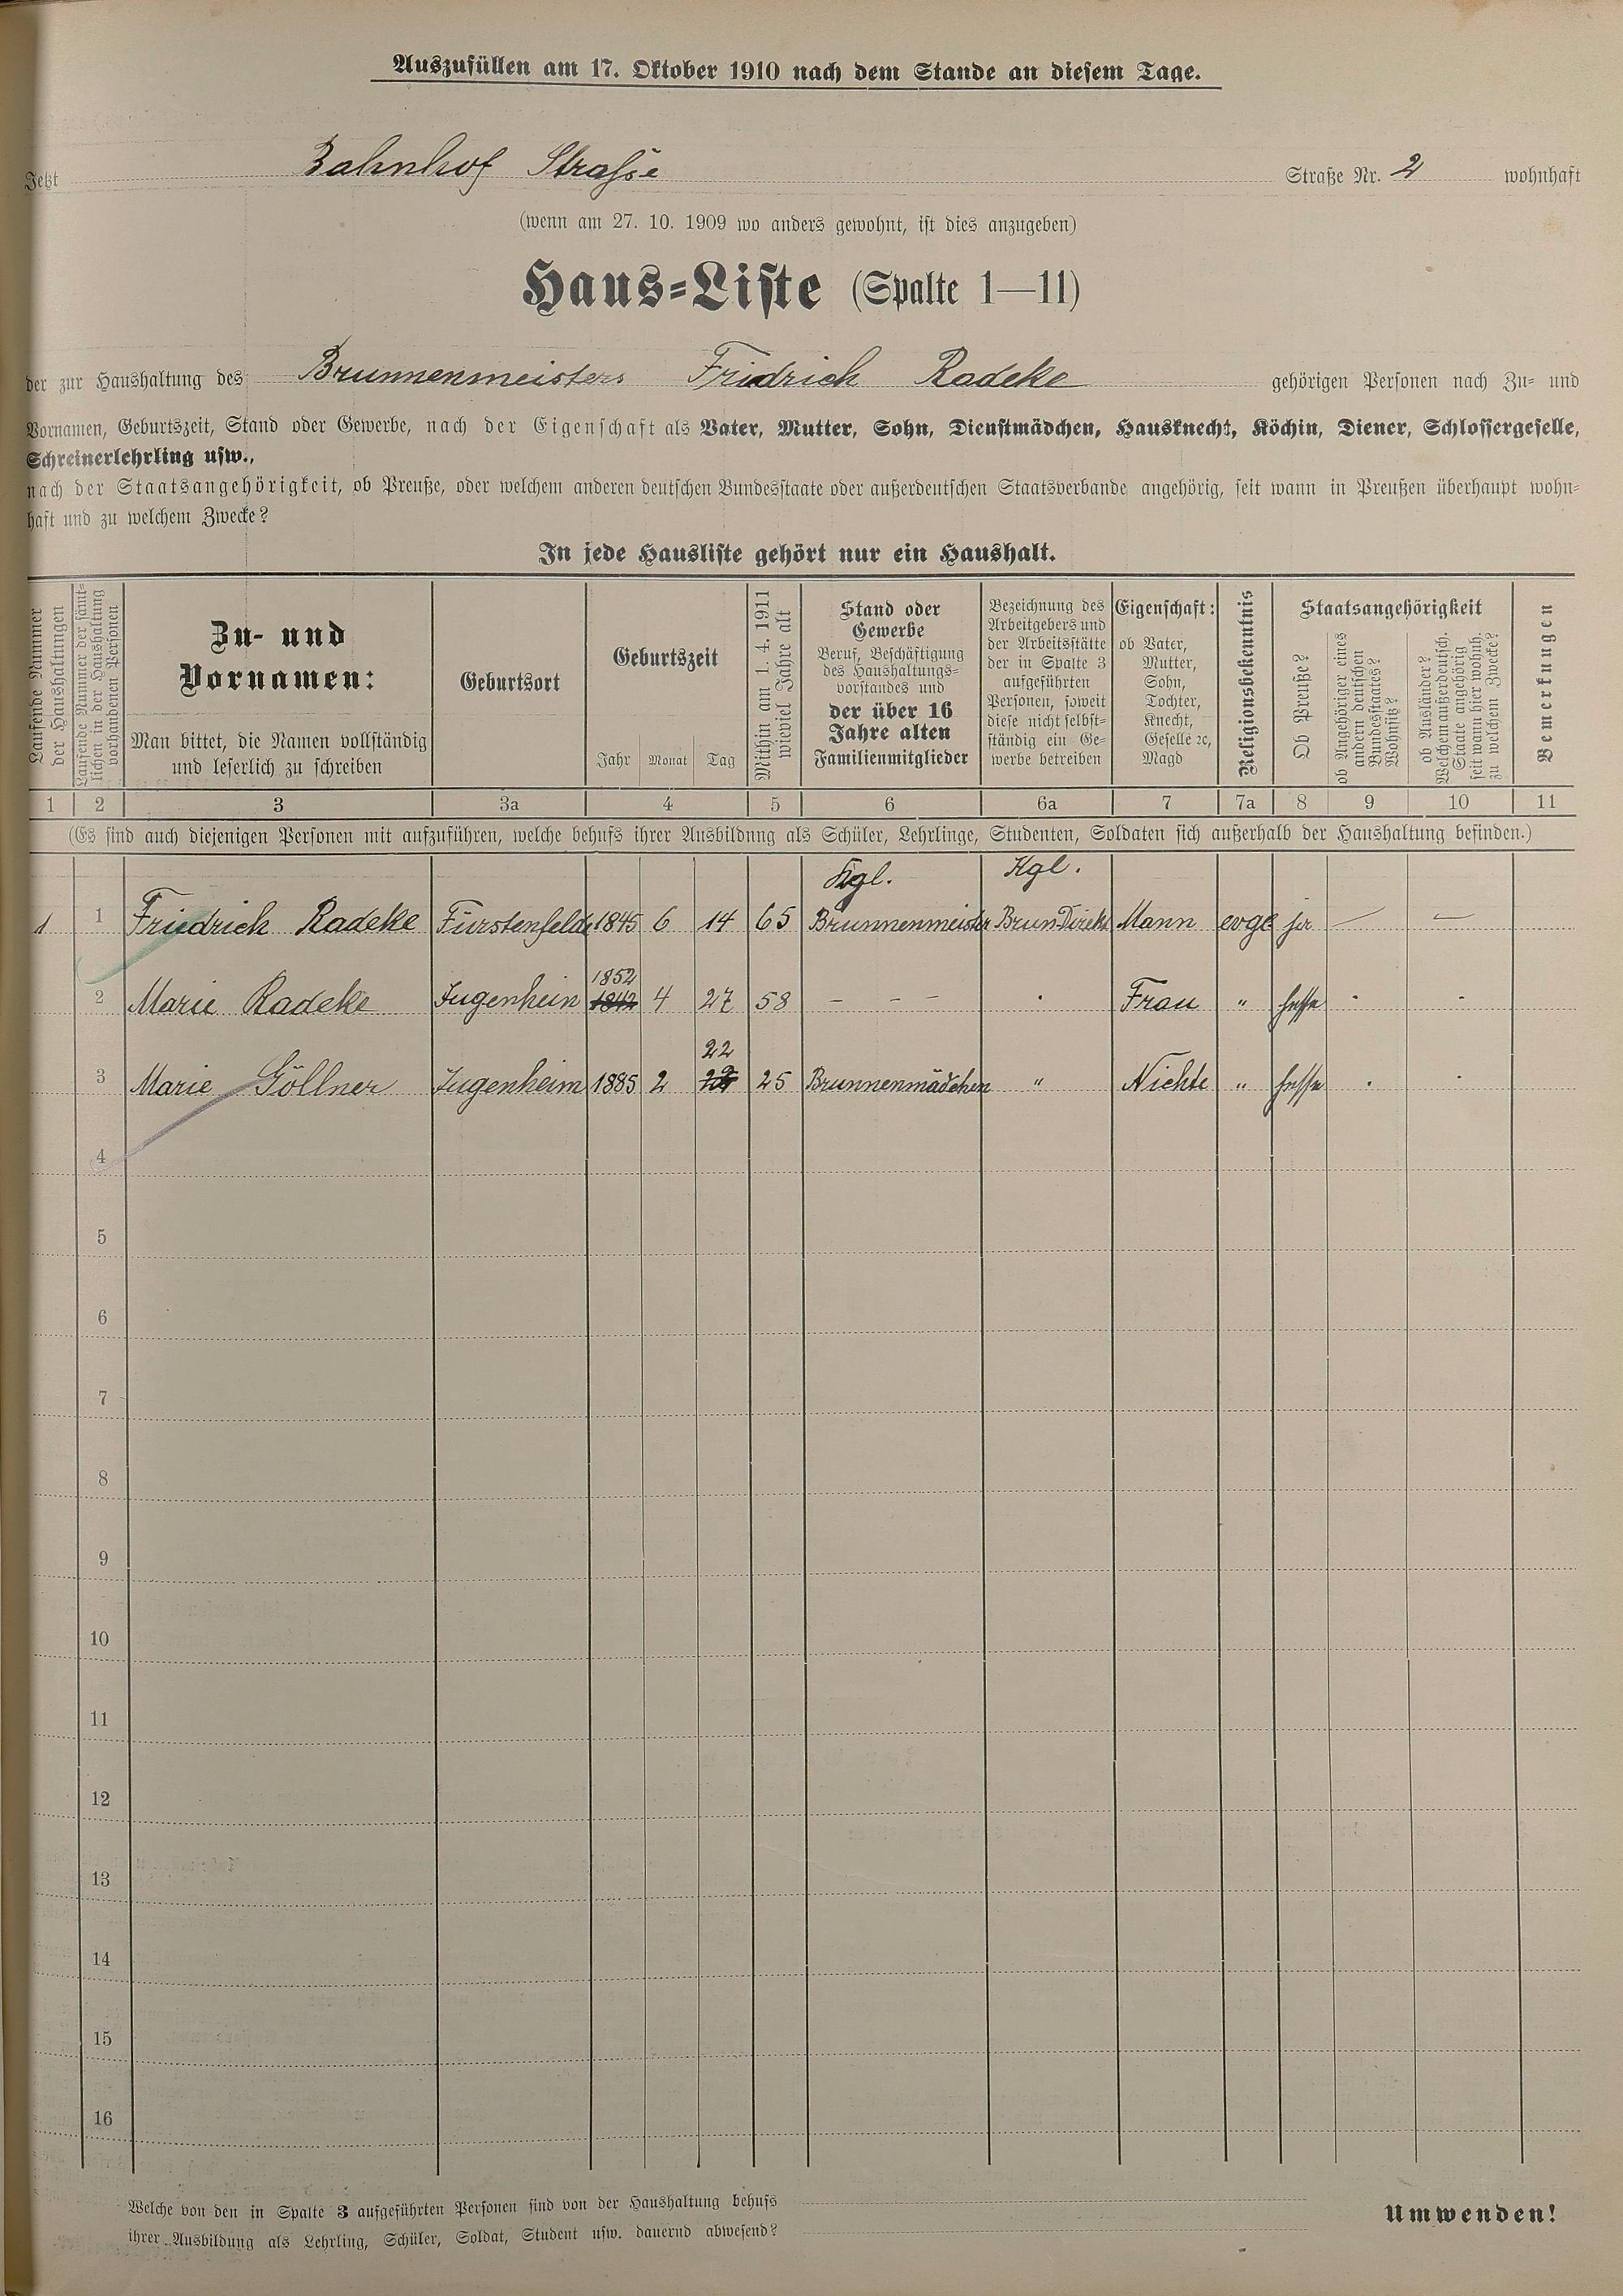 Auszufüllen am 17. Oktober 1910 nach dem Stande an diesem Tage.
Jetzt Bahnhof Strasse Straße Nr. 2 wohnhaft
(wenn am 27. 10. 1909 wo anders gewohnt, ist dies anzugeben)
Haus-Liste (Spalte 1—11)
der zur Haushaltung des Brunnenmeisters Fridrich Radeke gehörigen Personen nach Zu- und
Vornamen, Geburtszeit, Stand oder Gewerbe, nach der Eigenschaft als Vater, Mutter, Sohn, Dienstmädchen, Hausknecht, Köchin, Diener, Schlossergeselle,
Schreinerlehrling usw.,
nach der Staatsangehörigkeit, ob Preuße, oder welchem anderen deutschen Bundesstaate oder außerdeutschen Staatsverbande angehörig, seit wann in Preußen überhaupt wohn-
haft und zu welchem Zwecke?
In jede Hausliste gehört nur ein Haushalt.
Laufende Nummer
der Haushaltungen
Laufende Nummer der sämt-
lichen in der Haushaltung
vorhandenen Personen
Zu- und
Vornamen:
Man bittet, die Namen vollständig
und leserlich zu schreiben
Geburtsort
Geburtszeit
Jahr Monat Tag
Mithin am 1. 4. 1911
wieviel Jahre alt
Stand oder
Gewerbe
Beruf, Beschäftigung
des Haushaltungs-
vorstandes und
der über 16
Jahre alten
Familienmitglieder
Bezeichnung des
Arbeitgebers und
der Arbeitsstätte
der in Spalte 3
aufgeführten
Personen, soweit
diese nicht selbst-
ständig ein Ge-
werbe betreiben
Eigenschaft:
ob Vater,
Mutter,
Sohn,
Tochter,
Knecht,
Geselle ꝛc,
Magd
Religionsbekenntnis
Staatsangehörigkeit
Ob Preuße?
ob Angehöriger eines
andern deutschen
Bundesstaates?
Wohnsitz?
ob Ausländer?
Welchem außerdeutsch.
Staate angehörig
seit wann hier wohnh.
zu welchem Zwecke?
Bemerkungen
1 2 3 3a 4 5 6 6a 7 7a 8 9 10 11
(Es sind auch diejenigen Personen mit aufzuführen, welche behufs ihrer Ausbildung als Schüler, Lehrlinge, Studenten, Soldaten sich außerhalb der Haushaltung befinden.)
Kgl. Kgl.
1 1 Friedrich Radeke Fürstenfelde 1845 6 14 65 Brunnenmeister Brun-Direkt Mann evgl ja — —
1852
2 Marie Radeke Jugenhein 1842 4 27 58 - - - Frau " Hesse
22
3 Marie Göllner Jugenheim 1885 2 25 Brunnenmädchen " Nichte " Hesse
4
5
6
7
8
9
10
11
12
13
14
15
16
Welche von den in Spalte 3 aufgeführten Personen sind von der Haushaltung behufs
ihrer Ausbildung als Lehrling, Schüler, Soldat, Student usw. dauernd abwesend?
Umwenden!